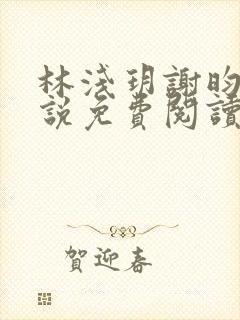 林淺玥謝昀
說免費閱讀
賀迎春